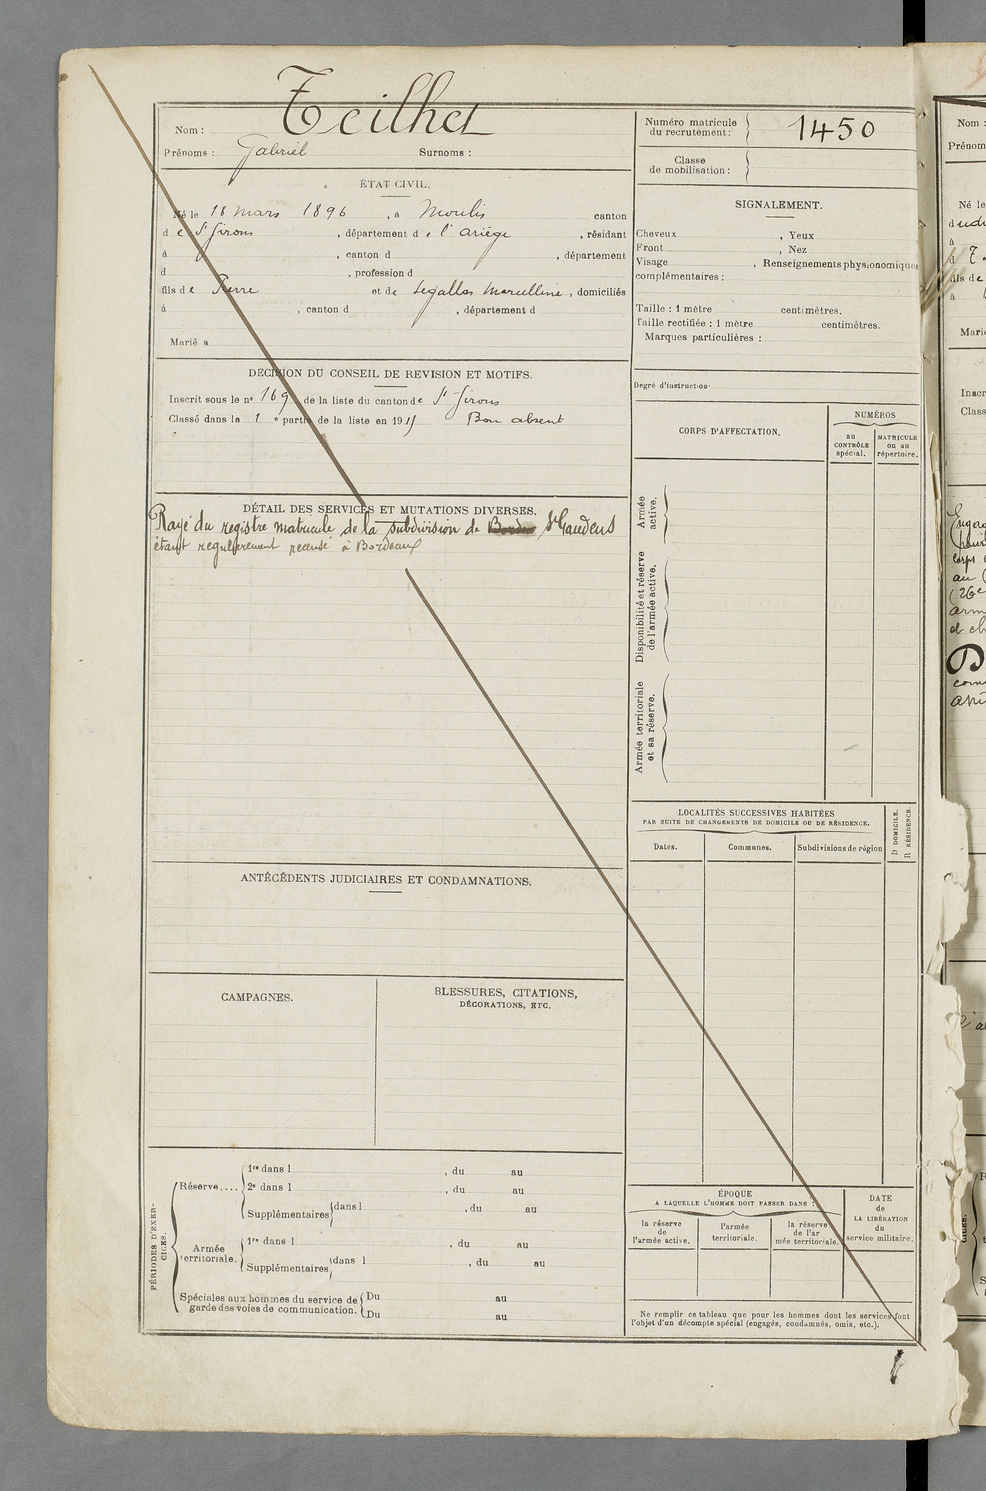 Nom : Teilhet
Prénoms : Gabriel Surnoms :
Numéro matricule du recrutement : 1450
Classe de mobilisation :
ÉTAT CIVIL.
Né le 18 mars 1896, à Moulis canton
de St Girons, département de l'Ariège, résidant
à , canton d , département
d , profession d
fils de Pierre et de Legallas Marcelline, domiciliés
à , canton d , département d
Marié à
DÉCISION DU CONSEIL DE REVISION ET MOTIFS.
Inscrit sous le n° 169 de la liste du canton de St Girons
Classé dans la 1e partie de la liste en 1915 Bon absent
DÉTAIL DES SERVICES ET MUTATIONS DIVERSES.
Rayé du registre matricule de la subdivision de St Gaudens
étant regulierement recensé à Bordeaux
ANTÉCÉDENTS JUDICIAIRES ET CONDAMNATIONS.
CAMPAGNES.
BLESSURES, CITATIONS,
DÉCORATIONS, ETC.
PÉRIODES D'EXERCICES.
Réserve....
1re dans l , du au
2e dans l , du au
Supplémentaires dans l , du au
Armée territoriale.
1re dans l , du au
Supplémentaires dans l , du au
Spéciales aux hommes du service de garde des voies de communication.
Du au
Du au
SIGNALEMENT.
Cheveux , Yeux
Front , Nez
Visage , Renseignements physionomiques
complémentaires :
Taille : 1 mètre centimètres.
Taille rectifiée : 1 mètre centimètres.
Marques particulières :
Degré d'instruction
CORPS D'AFFECTATION.
NUMÉROS
au CONTRÔLE spécial.
MATRICULE ou au répertoire.
Armée active.
Disponibilité et réserve de l'armée active.
Armée territoriale et sa réserve.
LOCALITÉS SUCCESSIVES HABITÉES
PAR SUITE DE CHANGEMENTS DE DOMICILE OU DE RÉSIDENCE.
D DOMICILE.
R RÉSIDENCE.
Dates. Communes. Subdivisions de région
ÉPOQUE
A LAQUELLE L'HOMME DOIT PASSER DANS :
la réserve de l'armée active.
l'armée territoriale.
la réserve de l'armée territoriale.
DATE de LA LIBÉRATION du service militaire.
Ne remplir ce tableau que pour les hommes dont les services font
l'objet d'un décompte spécial (engagés, condamnés, omis, etc.).
Nom :
Né le